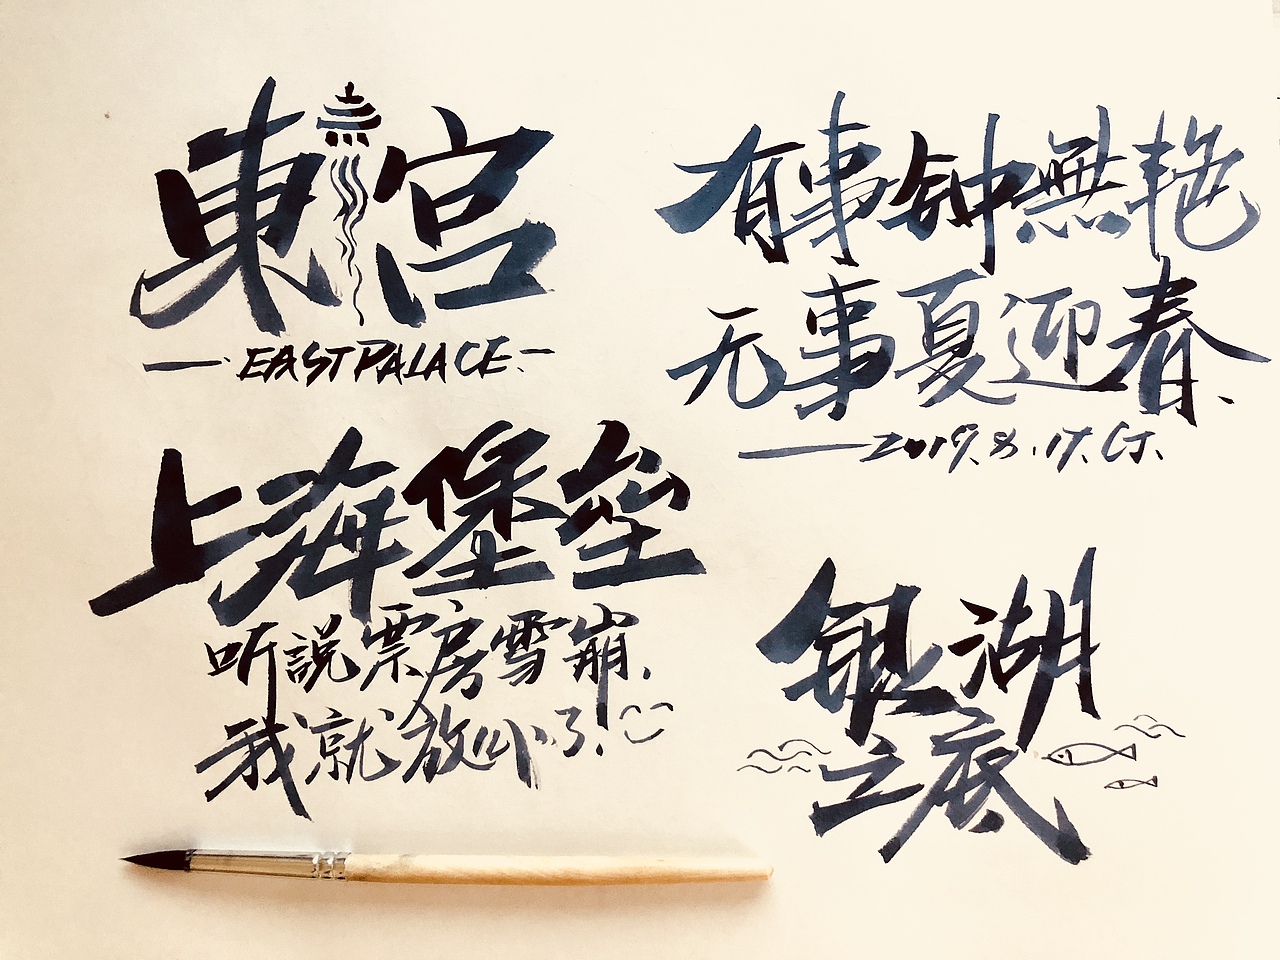 東宫
EASTPALACE
有事钟無艳
无事夏迎春
2019.8.17.CJ.
上海堡垒
听説票房雪崩.
我就放心了!
银湖
之底